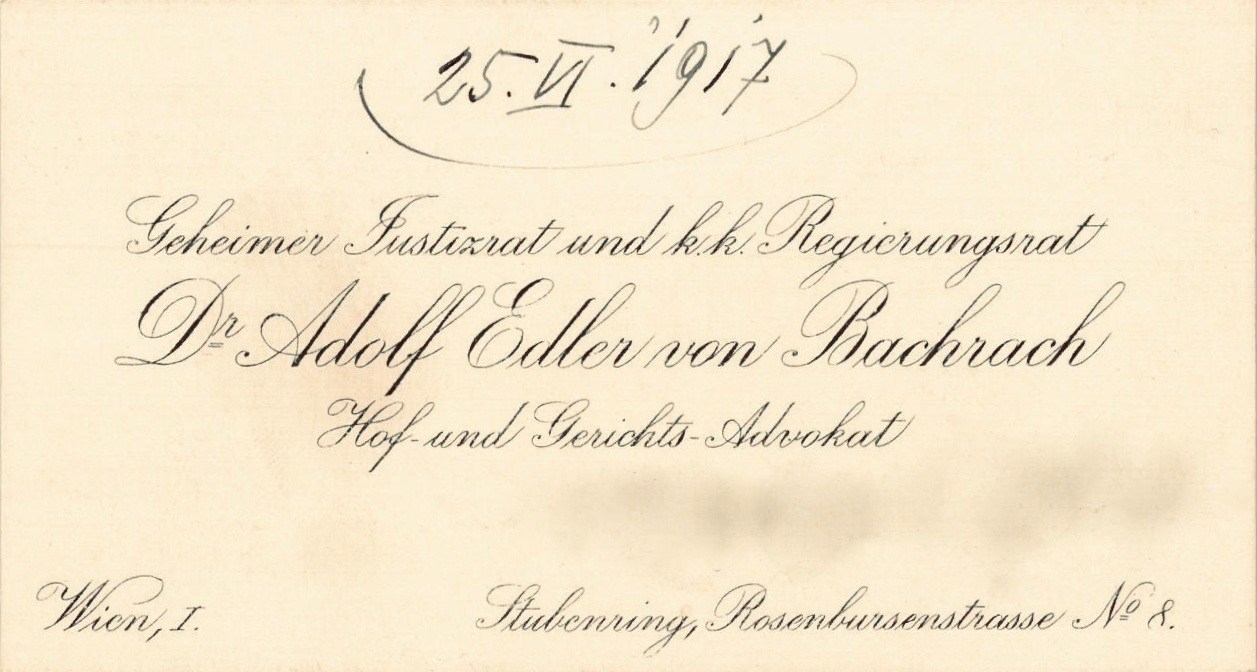 25. VI. 1917
Geheimer Justizrat und k.k. Regierungsrat
Dr Adolf Edler von Bachrach
Hof- und Gerichts-Advokat
Wien, I.
Stubenring, Rosenbursenstrasse No 8.